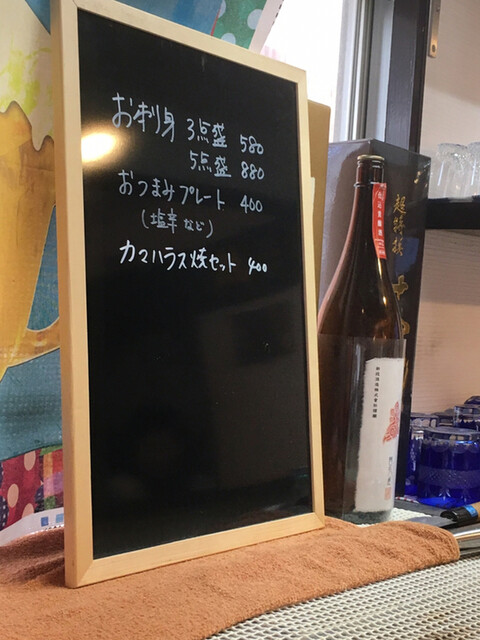 お刺身 3点盛 580
5点盛 880
おつまみプレート 400
(塩辛など)
カマハラス焼セット 400
超特撰